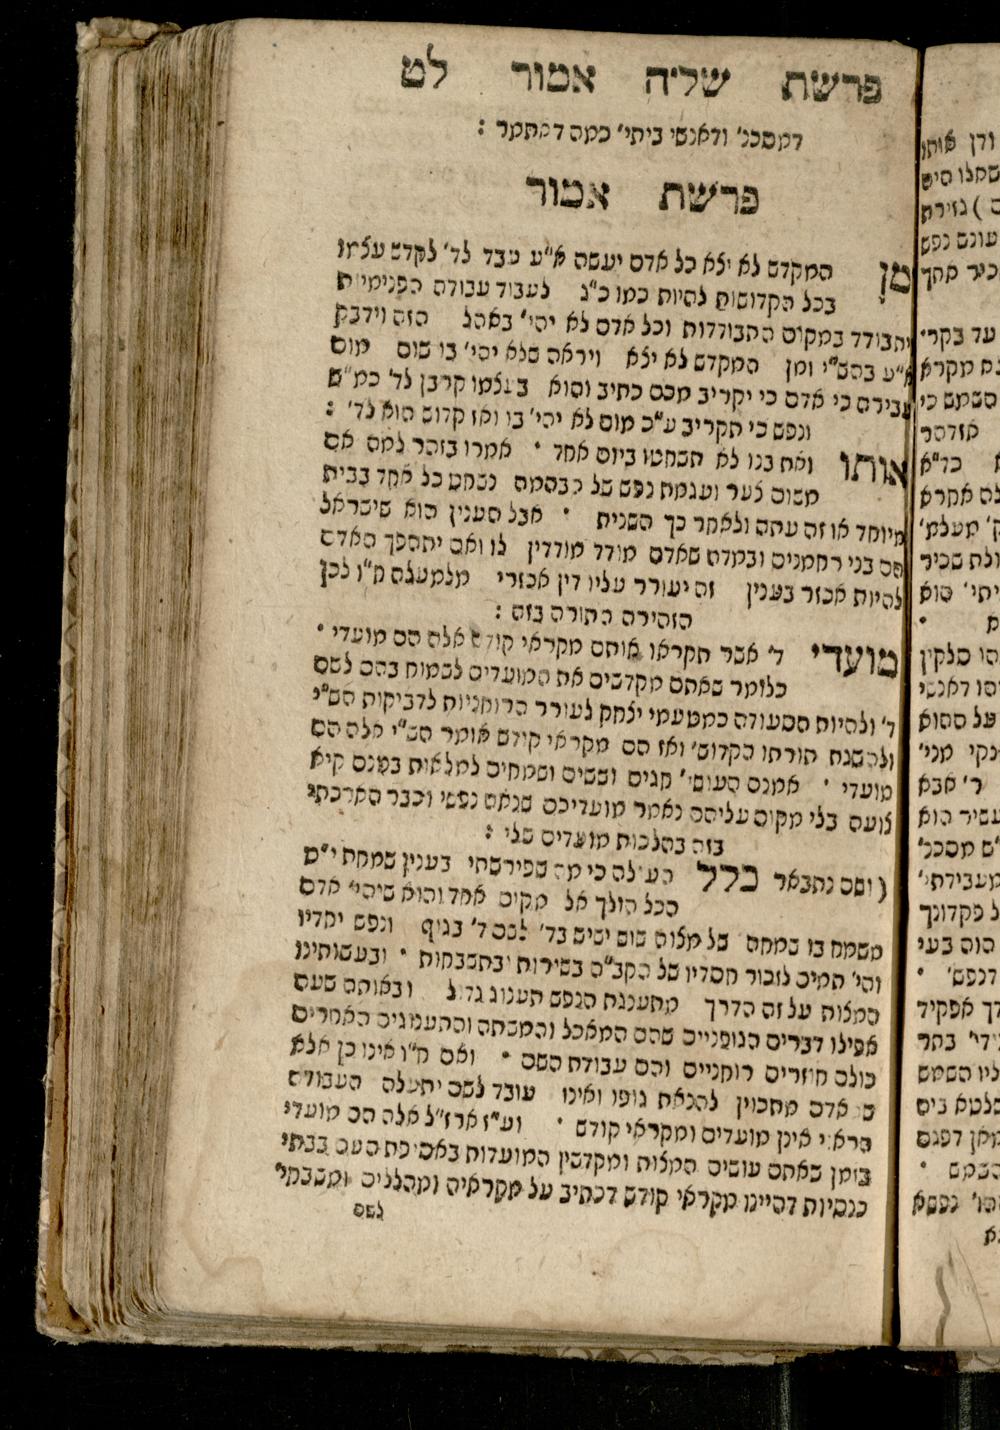 פרשת שליה אמור לט
דמסכנ׳ ודאנשי ביתי׳ כמה דאתמר :
פרשת אמור
מן המקדש לא יצא כל אדם יעשה א״ע עבד לד׳ לקדש עצמו
בכל הקדושות להיות כמו כ״ג לעבוד עבודת הפנימיות
יתבודד במקום התבודדות וכל אדם לא יהי׳ באהל הזה וידבק
א״ע בהש״י ומן המקדש לא יצא ויראה שלא יהי׳ בו שום מום
עבירה כי אדם כי יקריב מכם כתיב והוא בעצמו קרבן לד׳ כמ״ש
ונפש כי תקריב ע״כ מום לא יהי׳ בו ואז קדוש הוא לד׳ :
אותו ואת בנו לא תשחטו ביום אחד ׳ אמרו בזהר למה אם
משום צער ועגמת נפש של הבהמה נשחט כל אחד בבית
מיוחד או זה עתה ולאחר כך השנית ׳ אבל הענין הוא שישראל
הם בני רחמנים ובמדה שאדם מודד מודדין לו ואם יתהפך האדם
להיות אכזר בענין זה יעורר עליו דין אכזרי מלמעלה ח״ו לכן
הזהירה התורה בזה :
מועדי ד׳ אשר תקראו אותם מקראי קודש אלה הם מועדי ׳
כלומר שאתם מקדשים את המועדים לשמוח בהם לשם
ד׳ ולהיות הסעודה כמטעמי יצחק לעורר הרוחניות לדביקות הש״י
ולהשגת תורתו הקדוש׳ ואז הם מקראי קודש אומר הש״י אלה הם
מועדי ׳ אמנם העושי׳ חגים וששים ושמחים למלאות בטנם קיא
צועה בלי מקום עליהם נאמר מועדיכם שנאה נפשי וכבר הארכתי
בזה בהלכות מועדים שלי :
( ושם נתבאר כלל העולה כי מה שפירשתי בענין שמחת י״ט
הכל הולך אל מקום אחד והוא שיהי׳ אדם
משמח בו שמחה של מצוה שוש ישיש בד׳ לשם ד׳ בגוף ונפש יחדיו
והי׳ תמיד לזכור חסדיו של הקב״ה בשירות ובתשבחות ׳ ובעשותינו
המצות על זה הדרך מתענגת הנפש תענוג גדול ובאותה שעה
אפילו דברים הגופניים שהם המאכל והמשתה והתענוגים האחרים
כולם חוזרים רוחניים והם עבודת השם ׳ ואם ח״ו אינו כן אלא
אדם מתכוין להנאת גופו ואינו עובד לשם יתעלה העבודה
אינן מועדים ומקראי קודש ׳ וע״ז ארז״ל אלה הם מועדי
בזמן שאתם עושים המצות ומקדשין המועדות באסיפת העם בבתי
כנסיות דהיינו מקראי קודש דכתיב על מקראיה ומהללים ומשבחי׳
לשם
ודן אותו
עונם נפש
עד בקר׳
אזדהר
מעלמ׳
סלקין
על ההוא
ר׳ אבא
עשיר הוא
מסכנ׳
מעבידתי׳
פקדונך
הוה בעי
דנפש׳
דך אפקיד
בתר
השמש
נפשא